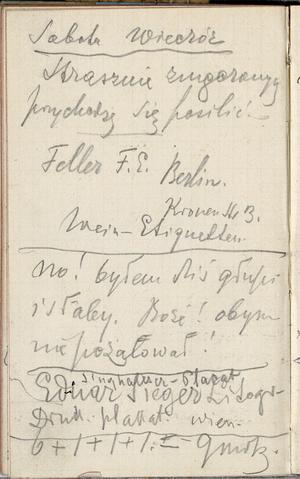 Sobota Wieczór
Strasznie zmęczony
przychodzę się posilić
Feller F. E. Berlin.
Kronenstr 3.
Wein-Etiquetten.
No! byłem dziś głupi
i słaby. Boże! obym
nie pożałował!
Plakat
Eduar Sieger Litogr-
Druk. plakat. wien.
6+1+1+1. =